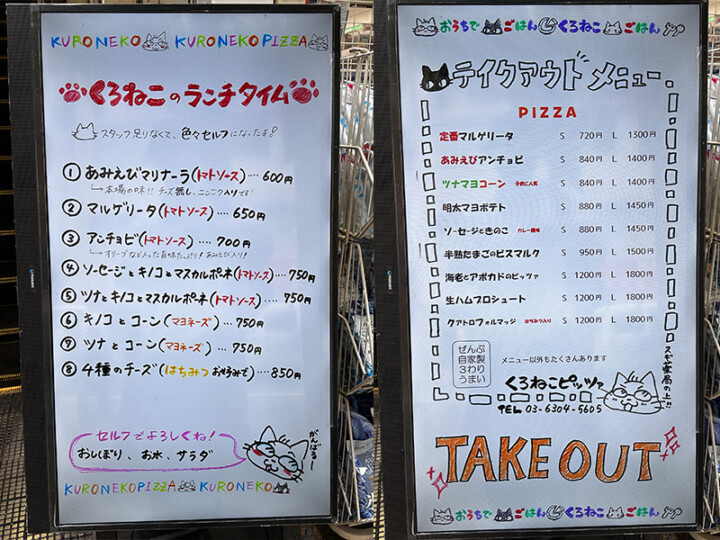 KURONEKO KURONEKOPIZZA
くろねこのランチタイム
スタッフ足りなくて、色々セルフになったよ!
① あみえびマリナーラ(トマトソース)‥‥600円
→本場の味!! チーズ無し、ニンニク入りです!
② マルゲリータ(トマトソース)‥‥650円
③ アンチョビ(トマトソース)‥‥700円
④ ソーセージとキノコとマスカルポーネ(トマトソース)‥750円
⑤ ツナとキノコとマスカルポーネ(トマトソース)‥‥750円
⑥ キノコとコーン(マヨネーズ)‥‥750円
⑦ ツナとコーン(マヨネーズ)‥‥750円
⑧ 4種のチーズ(はちみつお好みで)‥‥850円
セルフでよろしくね!
おしぼり、お水、サラダ
がんばるー
KURONEKOPIZZA KURONEKO
おうちでごはん くろねこごはん
テイクアウトメニュー
PIZZA
定番マルゲリータ S 720円 L 1300円
あみえびアンチョビ S 840円 L 1400円
ツナマヨコーン 子供に人気 S 840円 L 1400円
明太マヨポテト S 880円 L 1450円
ソーセージときのこ カレー風味 S 880円 L 1450円
半熟たまごのビスマルク S 950円 L 1500円
海老とアボカドのピッツァ S 1200円 L 1800円
生ハムプロシュート S 1200円 L 1800円
クアトロフォルマッジ はちみつ入り S 1200円 L 1800円
ぜんぶ
自家製
3わり
うまい
メニュー以外もたくさんあります
くろねこピッツァ
TEL 03-6304-5605
スギ薬局の上!!
TAKE OUT
おうちでごはん くろねこごはん